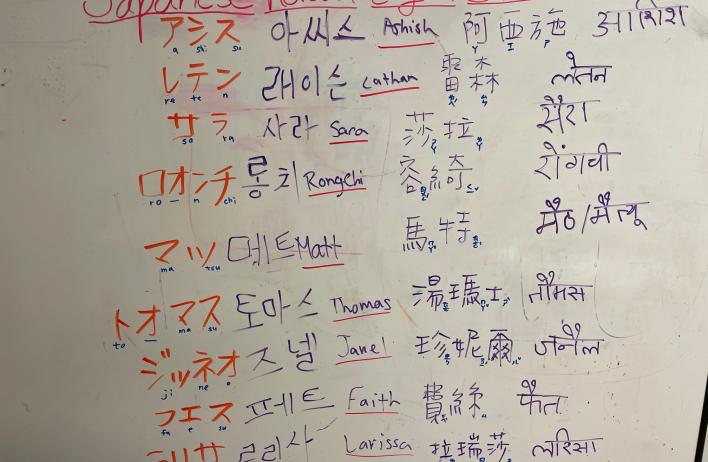 アシス 아씨스 Ashish 阿西施 आशिश
a shi su
レテン 래이슨 Lathan 雷林 लेतन
re te n
サラ 사라 Sara 莎拉 सैरा
sa ra
ロオンチ 롱치 Rongchi 容綺 रोंगची
ro - n chi
マツ 메트 Matt 馬特 मैठ/मैत्यू
ma tsu
トオマス 토마스 Thomas 湯瑪士 तौमस
to - ma su
ジッネオ 즈넬 Janel 珍妮爾 जनैल
ji ne o
フエス 페트 Faith 費絲 फैत
fa e su
리리사 Larissa 拉瑞莎 लरिसा